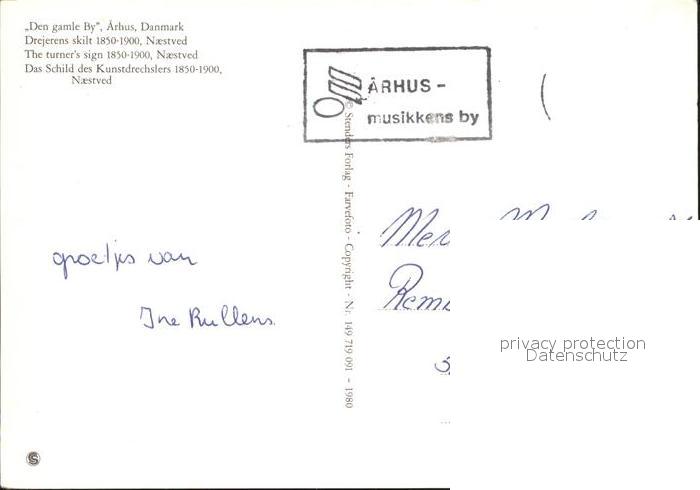 „Den gamle By”, Århus, Danmark
Drejerens skilt 1850-1900, Næstved
The turner's sign 1850-1900, Næstved
Das Schild des Kunstdrechslers 1850-1900,
Næstved
ÅRHUS -
musikkens by
© Stenders Forlag - Farvefoto - Copyright - Nr. 149 719 091 - 1980
groetjes van
Ine Rullens
privacy protection
Datenschutz
S